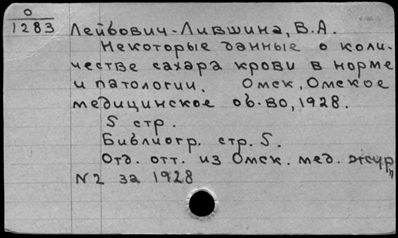 О
1283
Лейбович-Лившина, В.А.
Некоторые данные о коли-
честве сахара крови в норме
и патологии. Омск, Омское
медицинское об-во, 1928.
5 стр.
Библиогр. стр. 5.
Отд. отт. из Омск. мед. журн
N2 за 1928